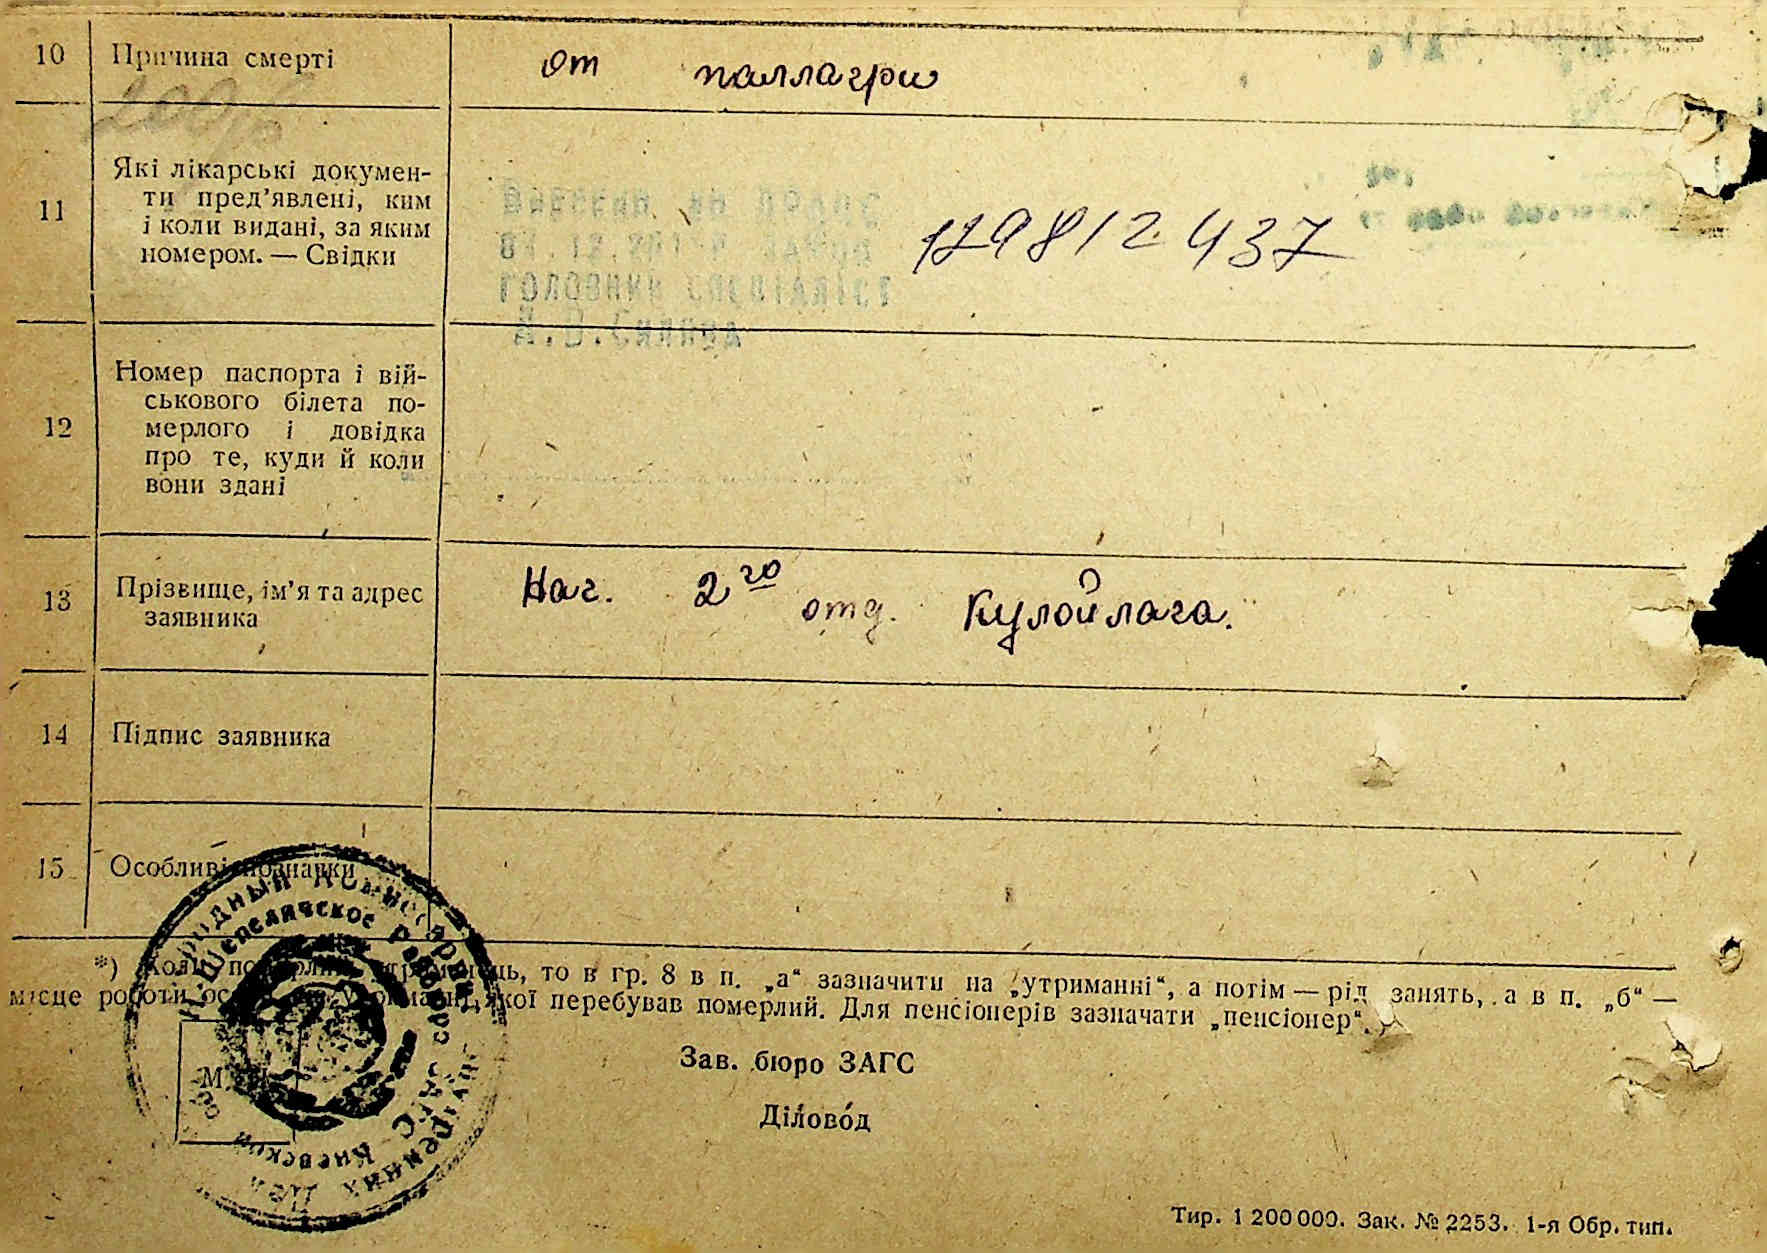 10 Причина смерті от паллагри
11 Які лікарські докумен-
ти пред'явлені, ким
і коли видані, за яким
номером. — Свідки
129812437
головний спеціаліст
12 Номер паспорта і вій-
ськового білета по-
мерлого і довідка
про те, куди й коли
вони здані
13 Прізвище, ім'я та адрес
заявника
Нач. 2го отд. Кулойлага.
14 Підпис заявника
15 Особливі познаки
*) Коли померлий утриманець, то в гр. 8 в п. „а“ зазначити на „утриманні“, а потім — рід занять, а в п. „б“ —
місце роботи особи, на утриманні якої перебував померлий. Для пенсіонерів зазначати „пенсіонер“.
Зав. бюро ЗАГС
Діловод
М.
Народный Комиссариат Внутренних Дел
Н-Шепеличское районное бюро ЗАГС Киевской обл
Тир. 1 200 000. Зак. № 2253. 1-я Обр. тип.